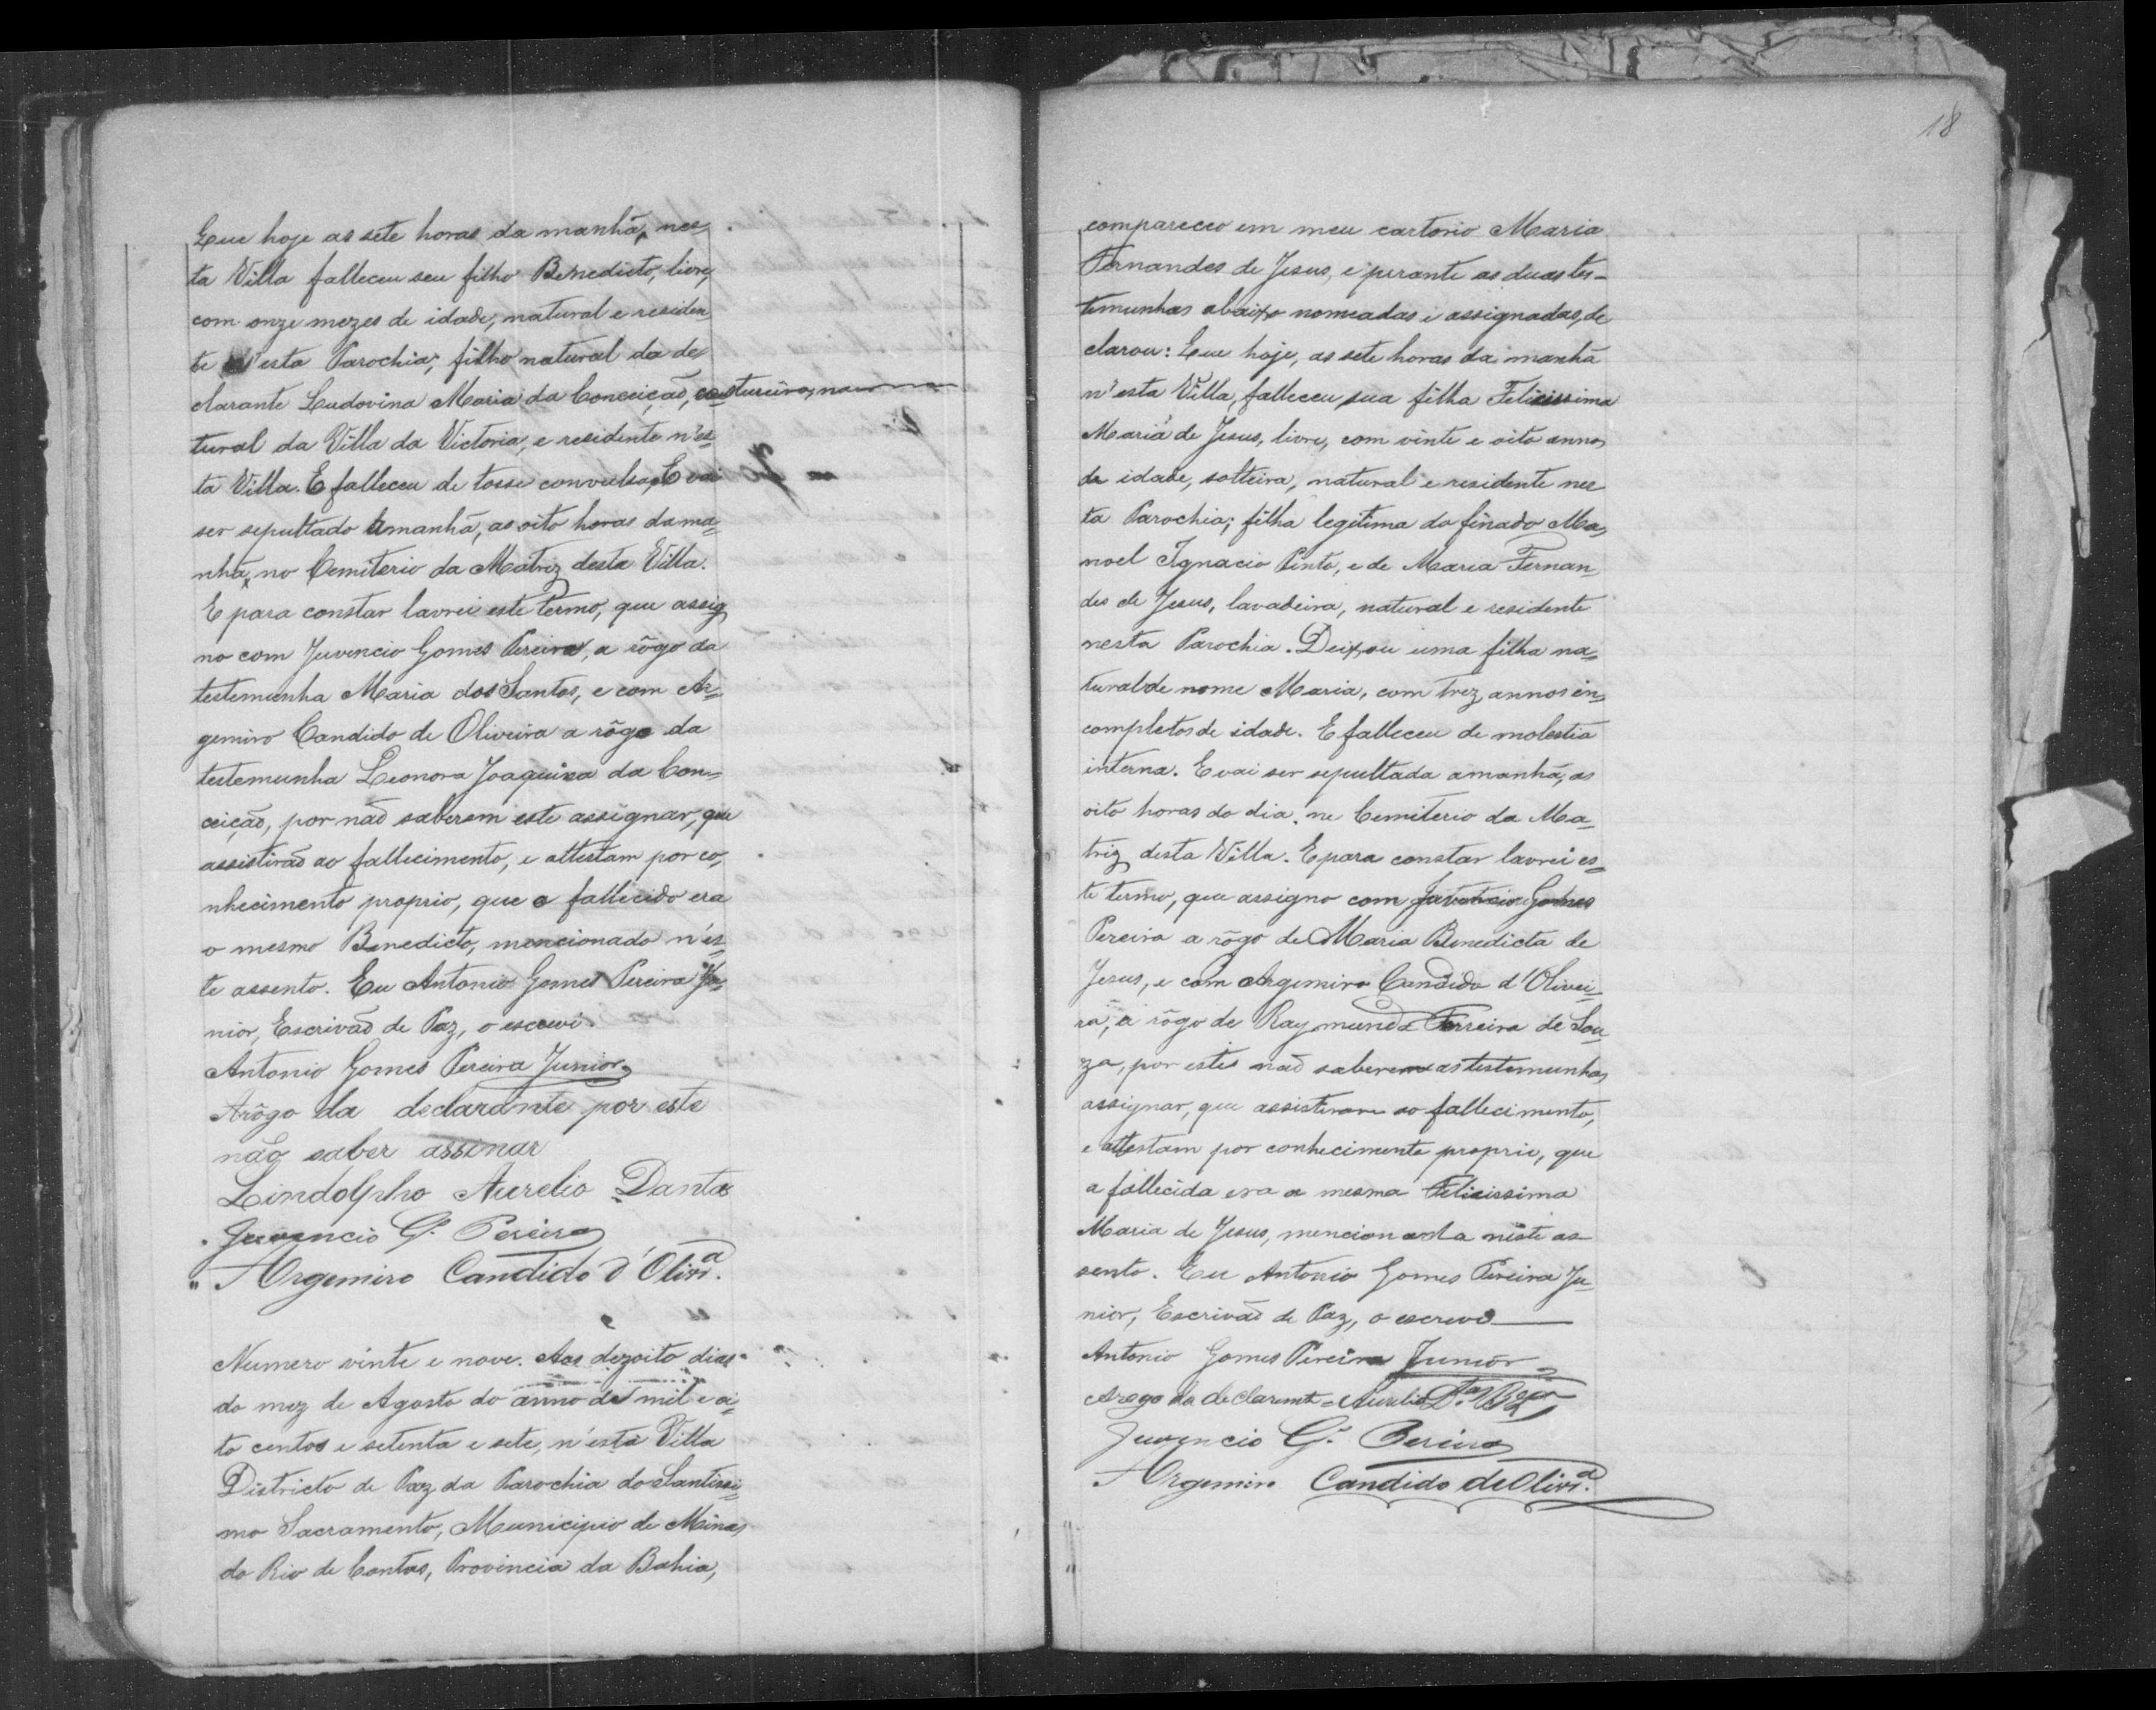 Que hoje as sete horas da manhã, nes
ta Villa falleceu seu filho Benedicto, livre,
com onze mezes de idade, natural e residen
te n'esta Parochia; filho natural da de
clarante Ludovina Maria da Conceição, costureira, na
tural da Villa da Victoria, e residente n'es=
ta Villa. E falleceu de tosse convulsa, E vai
ser sepultado amanhã, as oito horas da ma=
nhã, no Cemiterio da Matriz desta Villa.
E para constar lavrei este termo, que assig
no com Juvencio Gomes Pereira, a rôgo da
testemunha Maria dos Santos, e com Ar=
gemiro Candido de Oliveira a rôgo da
testemunha Leonora Joaquina da Con=
ceição, por não saberem este assignar, que
assistirão ao fallecimento, e attestam por co,
nhecimento proprio, que o fallecido era
o mesmo Benedicto, mencionado n'es=
te assento. Eu Antonio Gomes Pereira Ju=
nior, Escrivão de Paz, o escrevi.
Antonio Gomes Pereira Junior
Arôgo da declarante por este
não saber assinar
Lindolpho Aurelio Dantas
Juvencio G. Pereira
Argemiro Candido d'Olivr.a
Numero vinte e nove. Aos dezoito dias
do mez de Agosto do anno de mil e oi=
to centos e setenta e sete, n'esta Villa
Districto de Paz da Parochia do Santissi=
mo Sacramento, Municipio de Minas
do Rio de Contas, Provincia da Bahia,
18
compareceo em meu cartorio Maria
Fernandes de Jesus, e perante as duas tes-
temunhas abaixo nomeadas e assignadas, de
clarou: Que hoje, as sete horas da manhã
n'esta Villa, falleceu sua filha Felicissima
Maria de Jesus, livre, com vinte e oito annos
de idade, solteira, natural e residente nes
ta Parochia; filha legitima do finado Ma,
noel Ignacio Pinto, e de Maria Fernan,
des de Jesus, lavadeira, natural e residente
nesta Parochia. Deixou uma filha na=
tural de nome Maria, com trez annos in=
completos de idade. E falleceu de molestia
interna. E vai ser sepultada amanhã, as
oito horas do dia, no Cemiterio da Ma=
triz desta Villa. E para constar lavrei es=
te termo, que assigno com Juvencio Gomes
Pereira a rôgo de Maria Benedicta de
Jesus, e com Argemiro Candido d'Olivei=
ra, a rôgo de Raymundo Ferreira de Sou=
za, por estes não saberem as testemunhas
assignar, que assisteram ao fallecimento,
e attestam por conhecimento proprio, que
a fallecida era a mesma Felicissima
Maria de Jesus, mencionada niste as
sento. Eu Antonio Gomes Pereira Ju=
nior, Escrivão de Paz, o escrevi
Antonio Gomes Pereira Junior
Arogo da declarente Aurelio
Juvencio G. Pereira
Argemiro Candido de Olivr.a